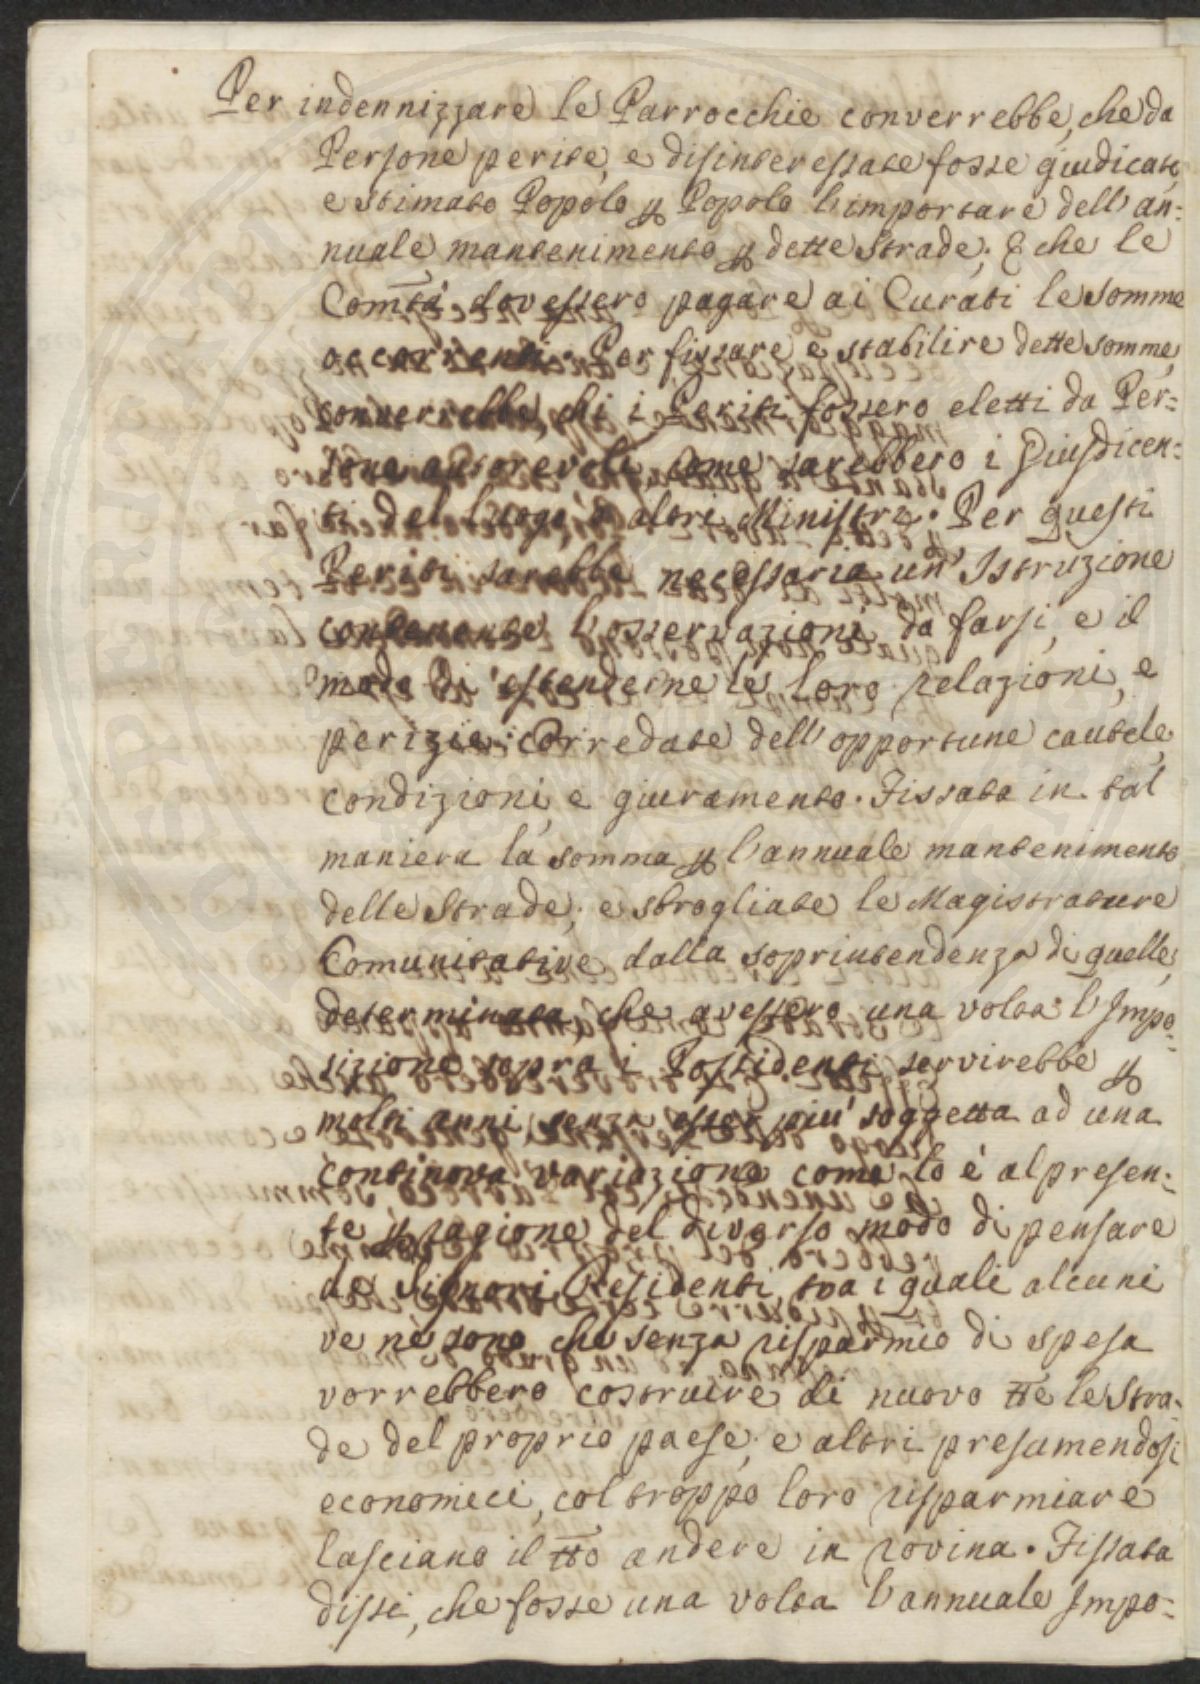 Per indennizzare le Parrocchie converrebbe, che da
Persone perite, e disinteressate fosse giudicato,
e stimato Popolo p Popolo l'importare dell'an:
nuale mantenimento p dette Strade; E che le
Comtà dovessero pagare ai Curati le somme
occorrenti. Per fissare e stabilire dette somme,
converrebbe, chi i Periti fossero eletti da Per:
sone autorevoli, come sarebbero i Giusdicen:
ti del luogo, o altri Ministri. Per questi
Periti sarebbe necessaria un'Istruzione
contenente l'osservazioni da farsi, e il
modo di estenderne le loro relazioni, e
perizie corredate dell'opportune cautele,
condizioni, e giuramento. Fissata in tal
maniera la somma p l'annuale mantenimento
delle Strade; e sbrogliate le Magistrature
Comunitative dalla soprintendenza di quelle,
determinata, che avessero una volta l'Impo:
sizione sopra i Possidenti servirebbe p
molti anni senza esser più soggetta ad una
continova variazione come lo è al presen:
te p ragione del diverso modo di pensare
de Signori Residenti, tra i quali alcuni
ve ne sono che senza risparmio di spesa
vorrebbero costruire di nuovo tte le Stra:
de del proprio paese; e altri presumendosi
economici, col troppo loro risparmiare
lasciano il tto andere in rovina. Fissata
dissi, che fosse una volta l'annuale Impo: